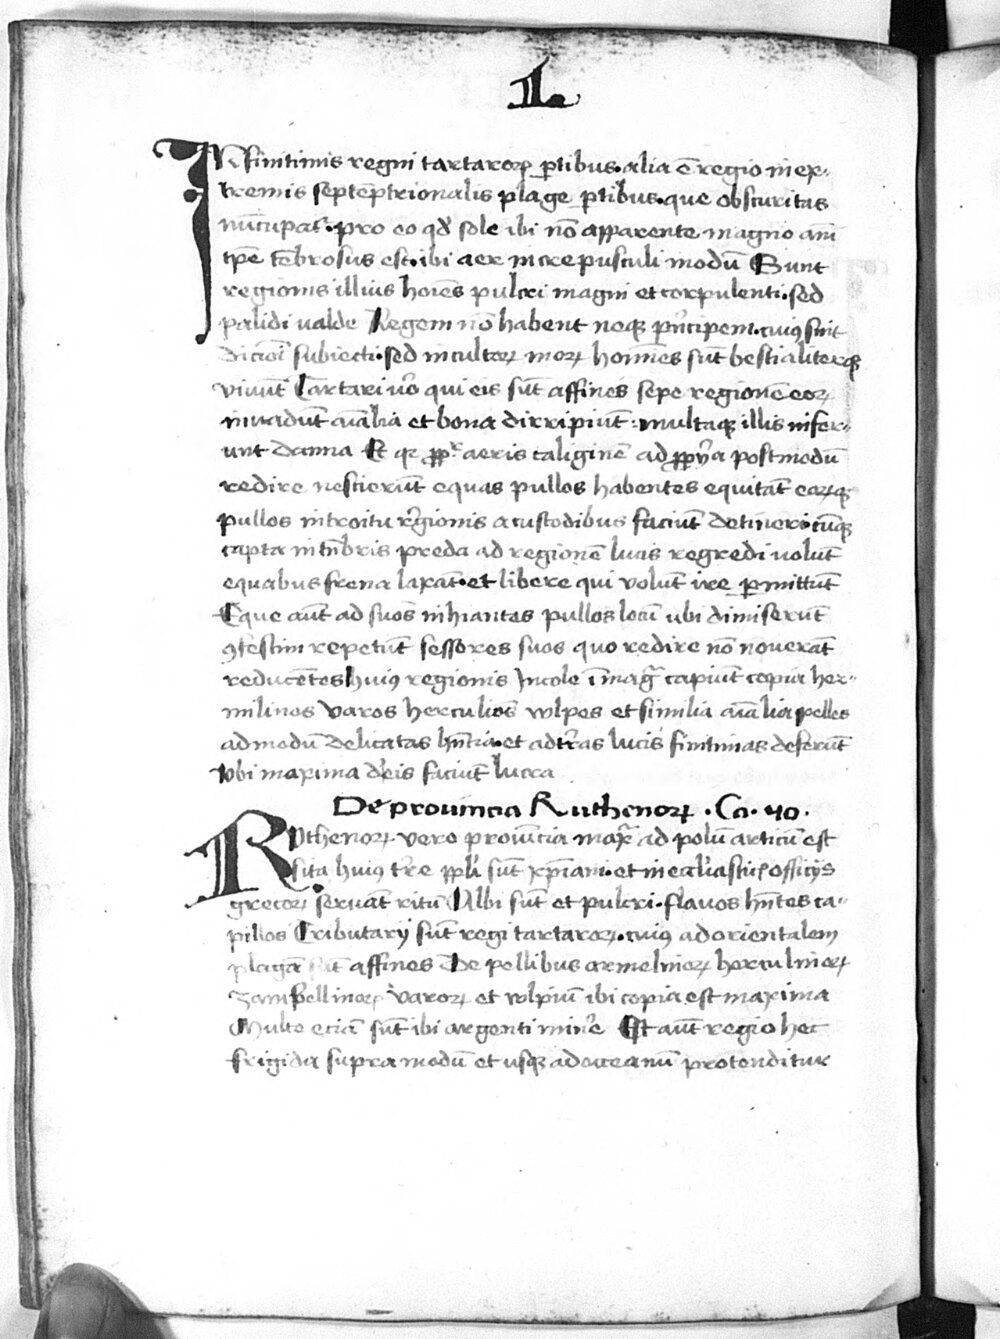 L.
IN finitimis regni tartaroꝝ ꝑtibus. alia ē regio in ex-
tremis septēptrionalis plage ꝑtibus. que obscuritas
nūcupat᷑. pro eo qđ sole ibi nō apparente magno āni
tꝑe tēbrosus est. ibi aer in crepusculi modū Sunt
regionis illius hoīes pulcri magni et corpulenti. sed
palidi valde Regem nō habent neqꝫ pͥncipem. cuiꝰ sint
dicioī subiecti. sed incultoꝝ moꝝ homīes sūt bestialiterqꝫ
vivūt Tartari v̄o qui eis sūt affines sepe regionē eoꝝ
invadūt aīalia et bona dirripiūt: multaqꝫ illis infer-
unt damna Et qꝛ ꝓpͭ aeris caliginē ad ꝓpͥa postmodū
redire nescierūt equas pullos habentes equitāt earūqꝫ
pullos introitu regionis a custodibus faciūt detineri. cūqꝫ
capta in tn̄bris preda ad regionē lucis regredi volūt
equabus frena laxāt. et libere qui volūt ire ꝑmittūt
Eque aūt ad suos inhiantes pullos locū ubi dimiserūt
ꝯfestim repetūt sessores suos quo redire nō noverāt
reducētes huiꝰ regionis Incole ī magͣ capiūt copia her-
milinos varos herculios vvlpes et similia aīalia pelles
ad modū delicatas hn̄tia. et ad tr̄as lucis finitimas deferūt
Vbi maxima d̄ eis faciūt lucra
De provincia Ruthenoꝝ. Ca. 40.
RVthenoꝝ vero provīcia maxͣ ad polū articū est
sita huiꝰ tr̄e ꝓpl̄i sūt xp̄iani. et in eccl̄iasticis officijs
grecoꝝ servāt ritū Albi sūt et pulcri. flavos hn̄tes ca-
pillos Tributarij sūt regi tartaroꝝ. cuiꝰ ad orientalem
plagā sūt affines De pellibus armelinoꝝ herculinoꝝ
zambellinoꝝ varoꝝ et vvlpiū ibi copia est maxima
Multe eciā sūt ibi argenti min̄e Est aūt regio hec
frigida supra modū et usqꝫ ad oceanū protenditur